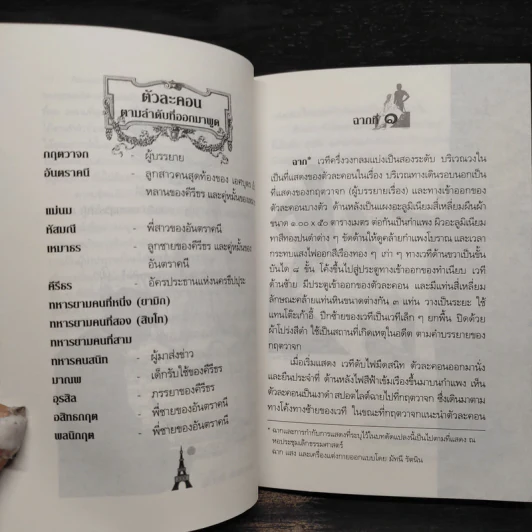 ตัวละคอน
ตามลำดับที่ออกมาพูด
กฤตวาจก - ผู้บรรยาย
อันตราคนี - ลูกสาวคนสุดท้องของ เอศบุตร
หลานของคีรีธร และคู่หมั้นของ
แม่นม
หัสมณี - พี่สาวของอันตราคนี
เหมาธร - ลูกชายของคีรีธร และคู่หมั้นของ
อันตราคนี
คีรีธร - อัครประธานแห่งนครชีปปุระ
ทหารยามคนที่หนึ่ง (ยามิก)
ทหารยามคนที่สอง (สิบโท)
ทหารยามคนที่สาม
ทหารคนสนิท - ผู้มาส่งข่าว
มาณพ - เด็กรับใช้ของคีรีธร
อุรสิล - ภรรยาของคีรีธร
อสิทธกฤต - พี่ชายของอันตราคนี
พลนิกฤต - พี่ชายของอันตราคนี
ฉากที่ ๑
ฉาก* เวทีครึ่งวงกลมแบ่งเป็นสองระดับ บริเวณวงใน
เป็นที่แสดงของตัวละคอนในเรื่อง บริเวณทางเดินรอบนอกเป็น
ที่แสดงของกฤตวาจก (ผู้บรรยายเรื่อง) และทางเข้าออกของ
ตัวละคอนบางตัว ด้านหลังเป็นแผงอะลูมิเนียมสี่เหลี่ยมผืนผ้า
ขนาด ๑๐๐ x ๕๐ ตารางเมตร ต่อกันเป็นกำแพง ผิวอะลูมิเนียม
ทาสีท่องปนดำต่าง ๆ ขัดด้านให้ดูคล้ายกำแพงโบราณ และเวลา
กระทบแสงไฟออกสีเรืองทอง ๆ เก่า ๆ ทางเวทีด้านขวาเป็นขั้น
บันได ๘ ขั้น โค้งขึ้นไปสู่ประตูทางเข้าออกของทำเนียบ เวที
ด้านซ้าย มีประตูเข้าออกของตัวละคอน และมีแท่นสี่เหลี่ยม
ลักษณะคล้ายแท่นหินขนาดต่างกัน ๓ แท่น วางเป็นระยะ ใช้
แทนโต๊ะเก้าอี้ ปีกซ้ายของเวทีเป็นเวทีเล็ก ๆ ยกพื้น ปิดด้วย
ผ้าโปร่งสีดำ ใช้เป็นสถานที่เกิดเหตุในอดีต ตามคำบรรยายของ
กฤตวาจก
เมื่อเริ่มแสดง เวทีดับไฟมืดสนิท ตัวละคอนออกมานั่ง
และยืนประจำที่ ด้านหลังไฟสีฟ้าเข้มเรืองขึ้นมาบนกำแพง เห็น
ตัวละคอนเป็นเงาดำ สปอตไลต์ฉายไปที่กฤตวาจก ซึ่งเดินมาตาม
ทางโค้งทางซ้ายของเวที ในขณะที่กฤตวาจกแนะนำตัวละคอน
* ฉากและการกำกับการแสดงที่ระบุไว้ในบทดัดแปลงนี้เป็นไปตามที่แสดง ณ
หอประชุมเล็กธรรมศาสตร์
ฉาก แสง และเครื่องแต่งกายออกแบบโดย มัทนี รัตนิน